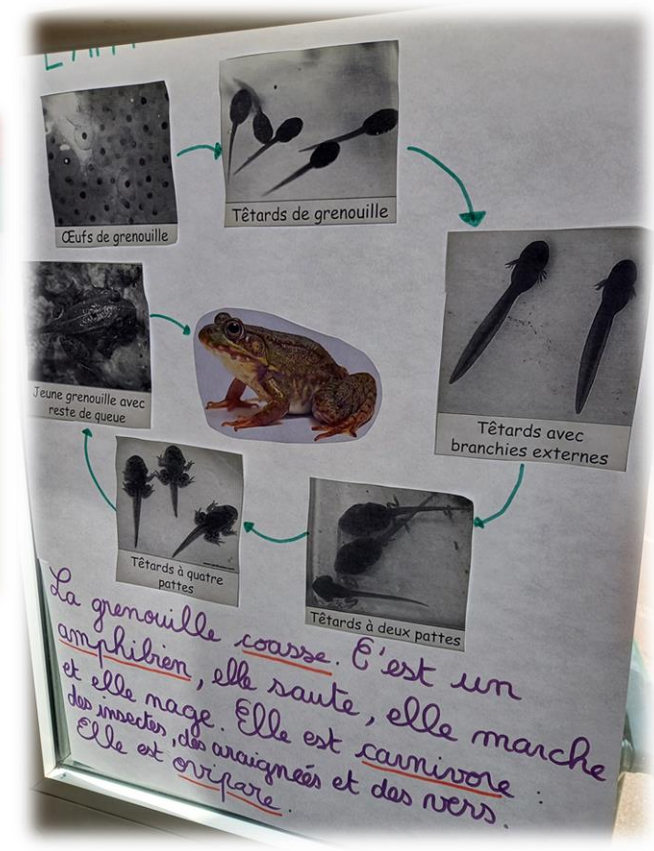 Œufs de grenouille
Têtards de grenouille
Têtards avec
branchies externes
Têtards à deux pattes
Têtards à quatre
pattes
Jeune grenouille avec
reste de queue
La grenouille coasse. C'est un
amphibien, elle saute, elle marche
et elle nage. Elle est carnivore :
des insectes, des araignées et des vers.
Elle est ovipare.